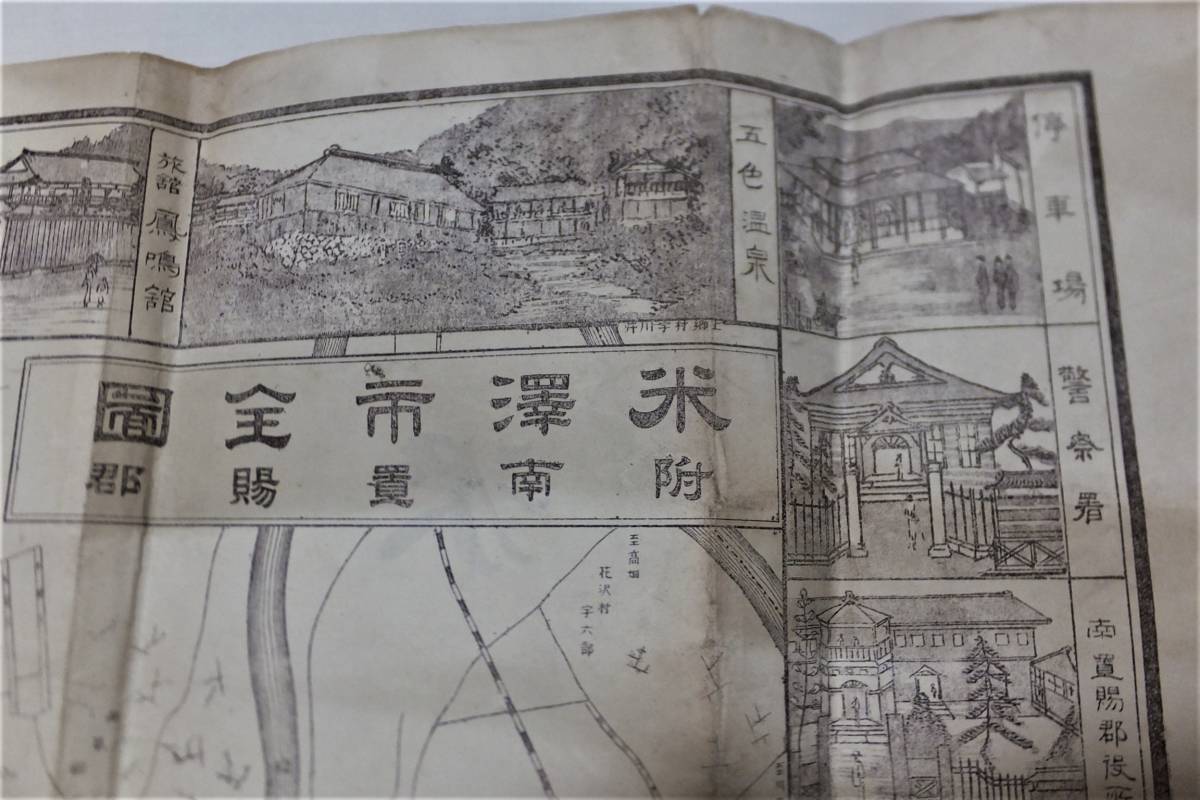 停車場
五色温泉
旅舘 鳳鳴舘
警察署
南置賜郡役所
上郷村字川井
米澤市全圖
附南置賜郡
至高畑
花沢村
字六郎